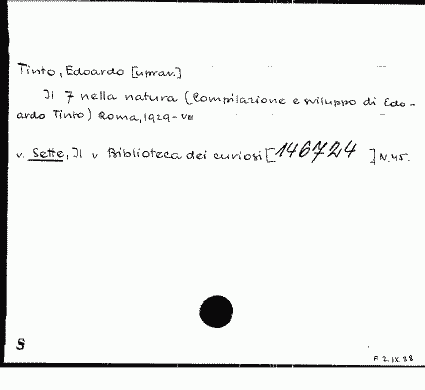 Tinto, Edoardo [uprav.]
Il 7 nella natura (Compilazione e sviluppo di Edo-
ardo Tinto) Roma, 1929-VIII
v. Sette, Il v Biblioteca dei curiosi [146724] N.45.
S
F 2.IX 88